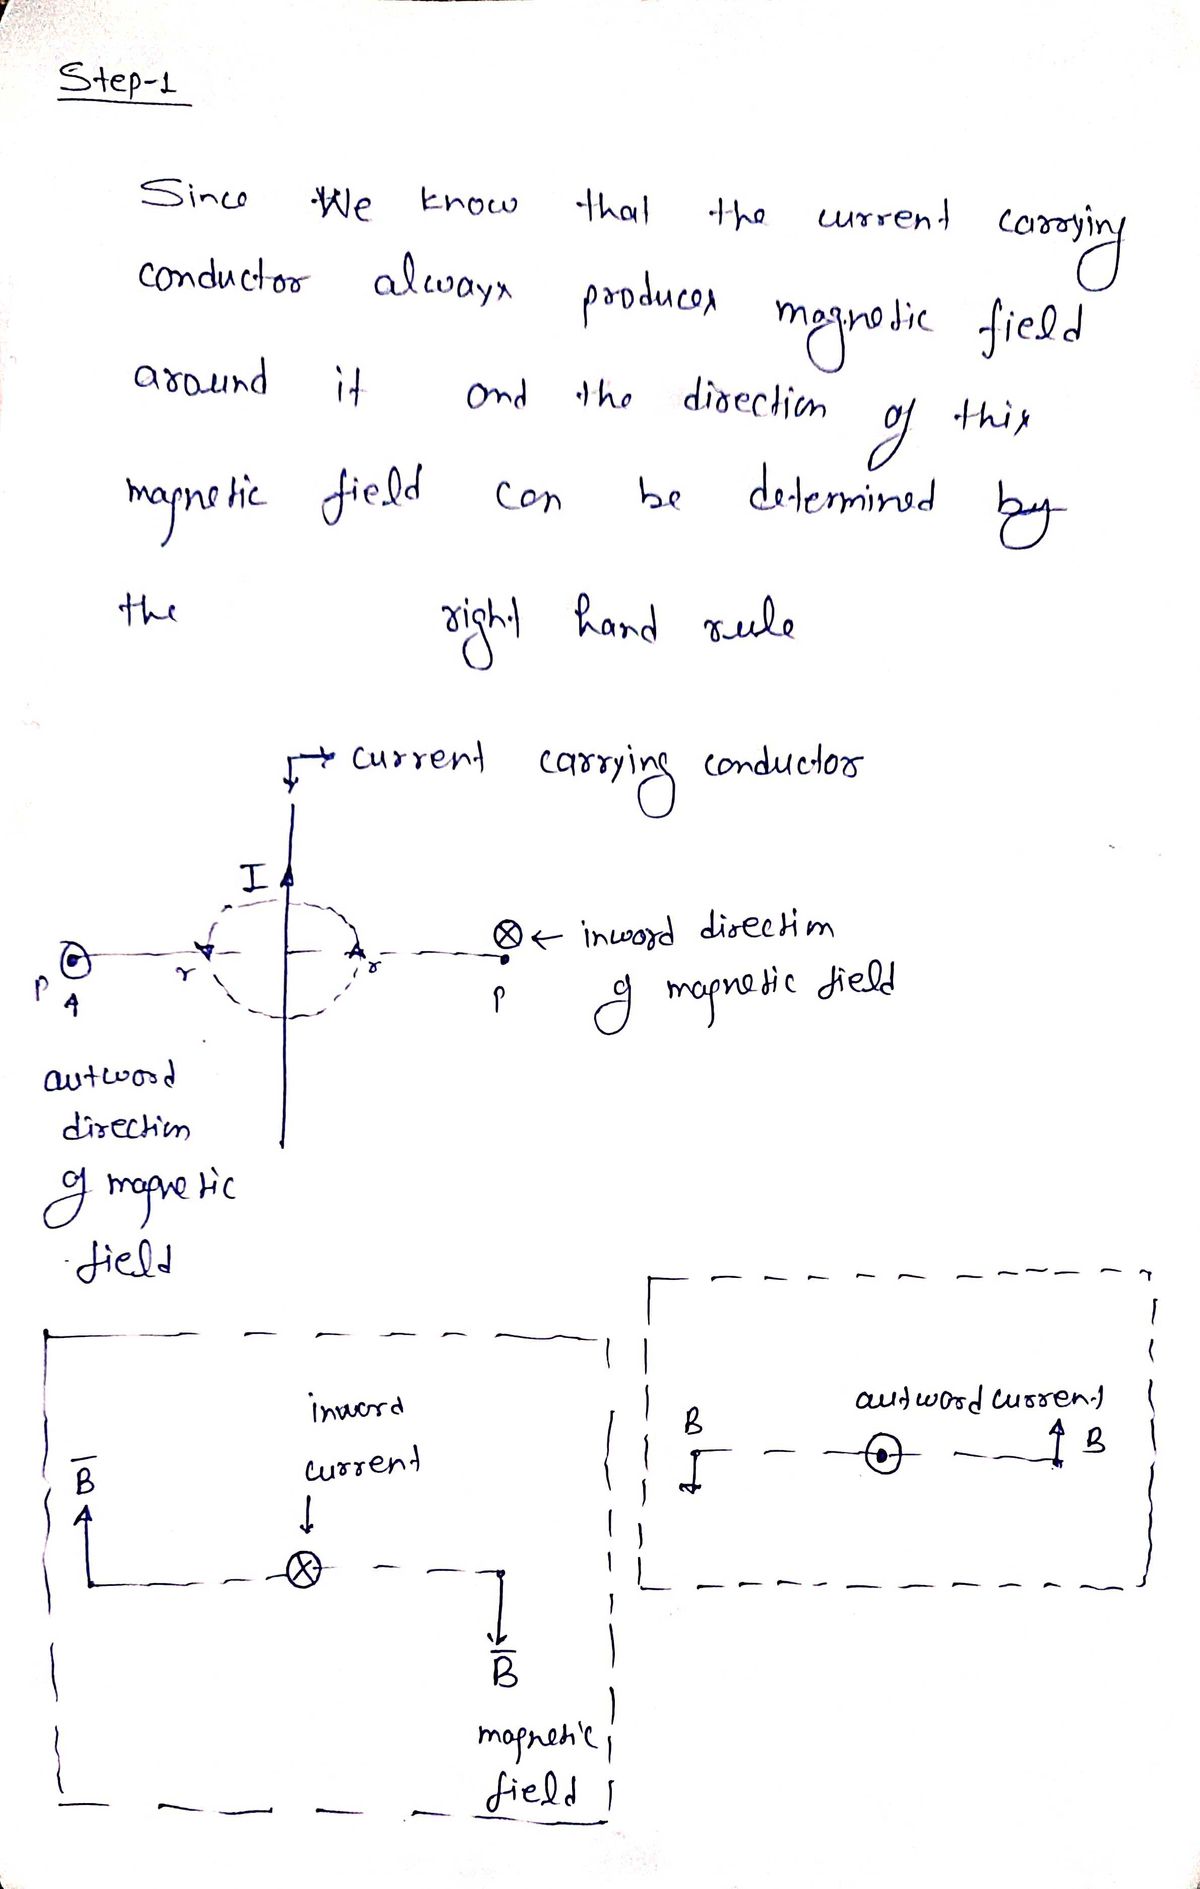 Step-1
Since We know that the current carrying
conductor always produces magnetic field
around it and the direction of this
magnetic field can be determined by
the right hand rule
current carrying conductor
I
⊗ ← inword direction
of magnetic field
P
r
r
P
outword
direction
of magnetic
field
inword
current
B
⊗
B
magnetic
field
outword current
B
B